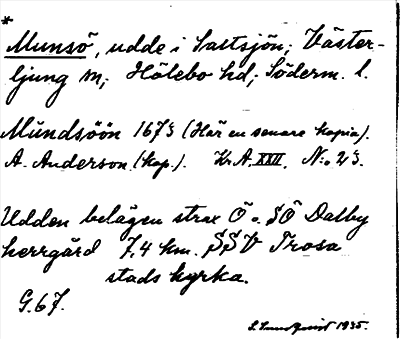 *
Munsö, udde i Saltsjön; Väster-
ljung sn; Hölebo hd; Söderm. l.
Mündsöön 1673 (Här en senare kopia).
A. Anderson (kop.). Kr.A. XXII. No 23.
Udden belägen strax Ö o. SÖ Dalby
herrgård 7,4 km. SSV Trosa
stads kyrka.
G.67.
S. Lundquist 1935.